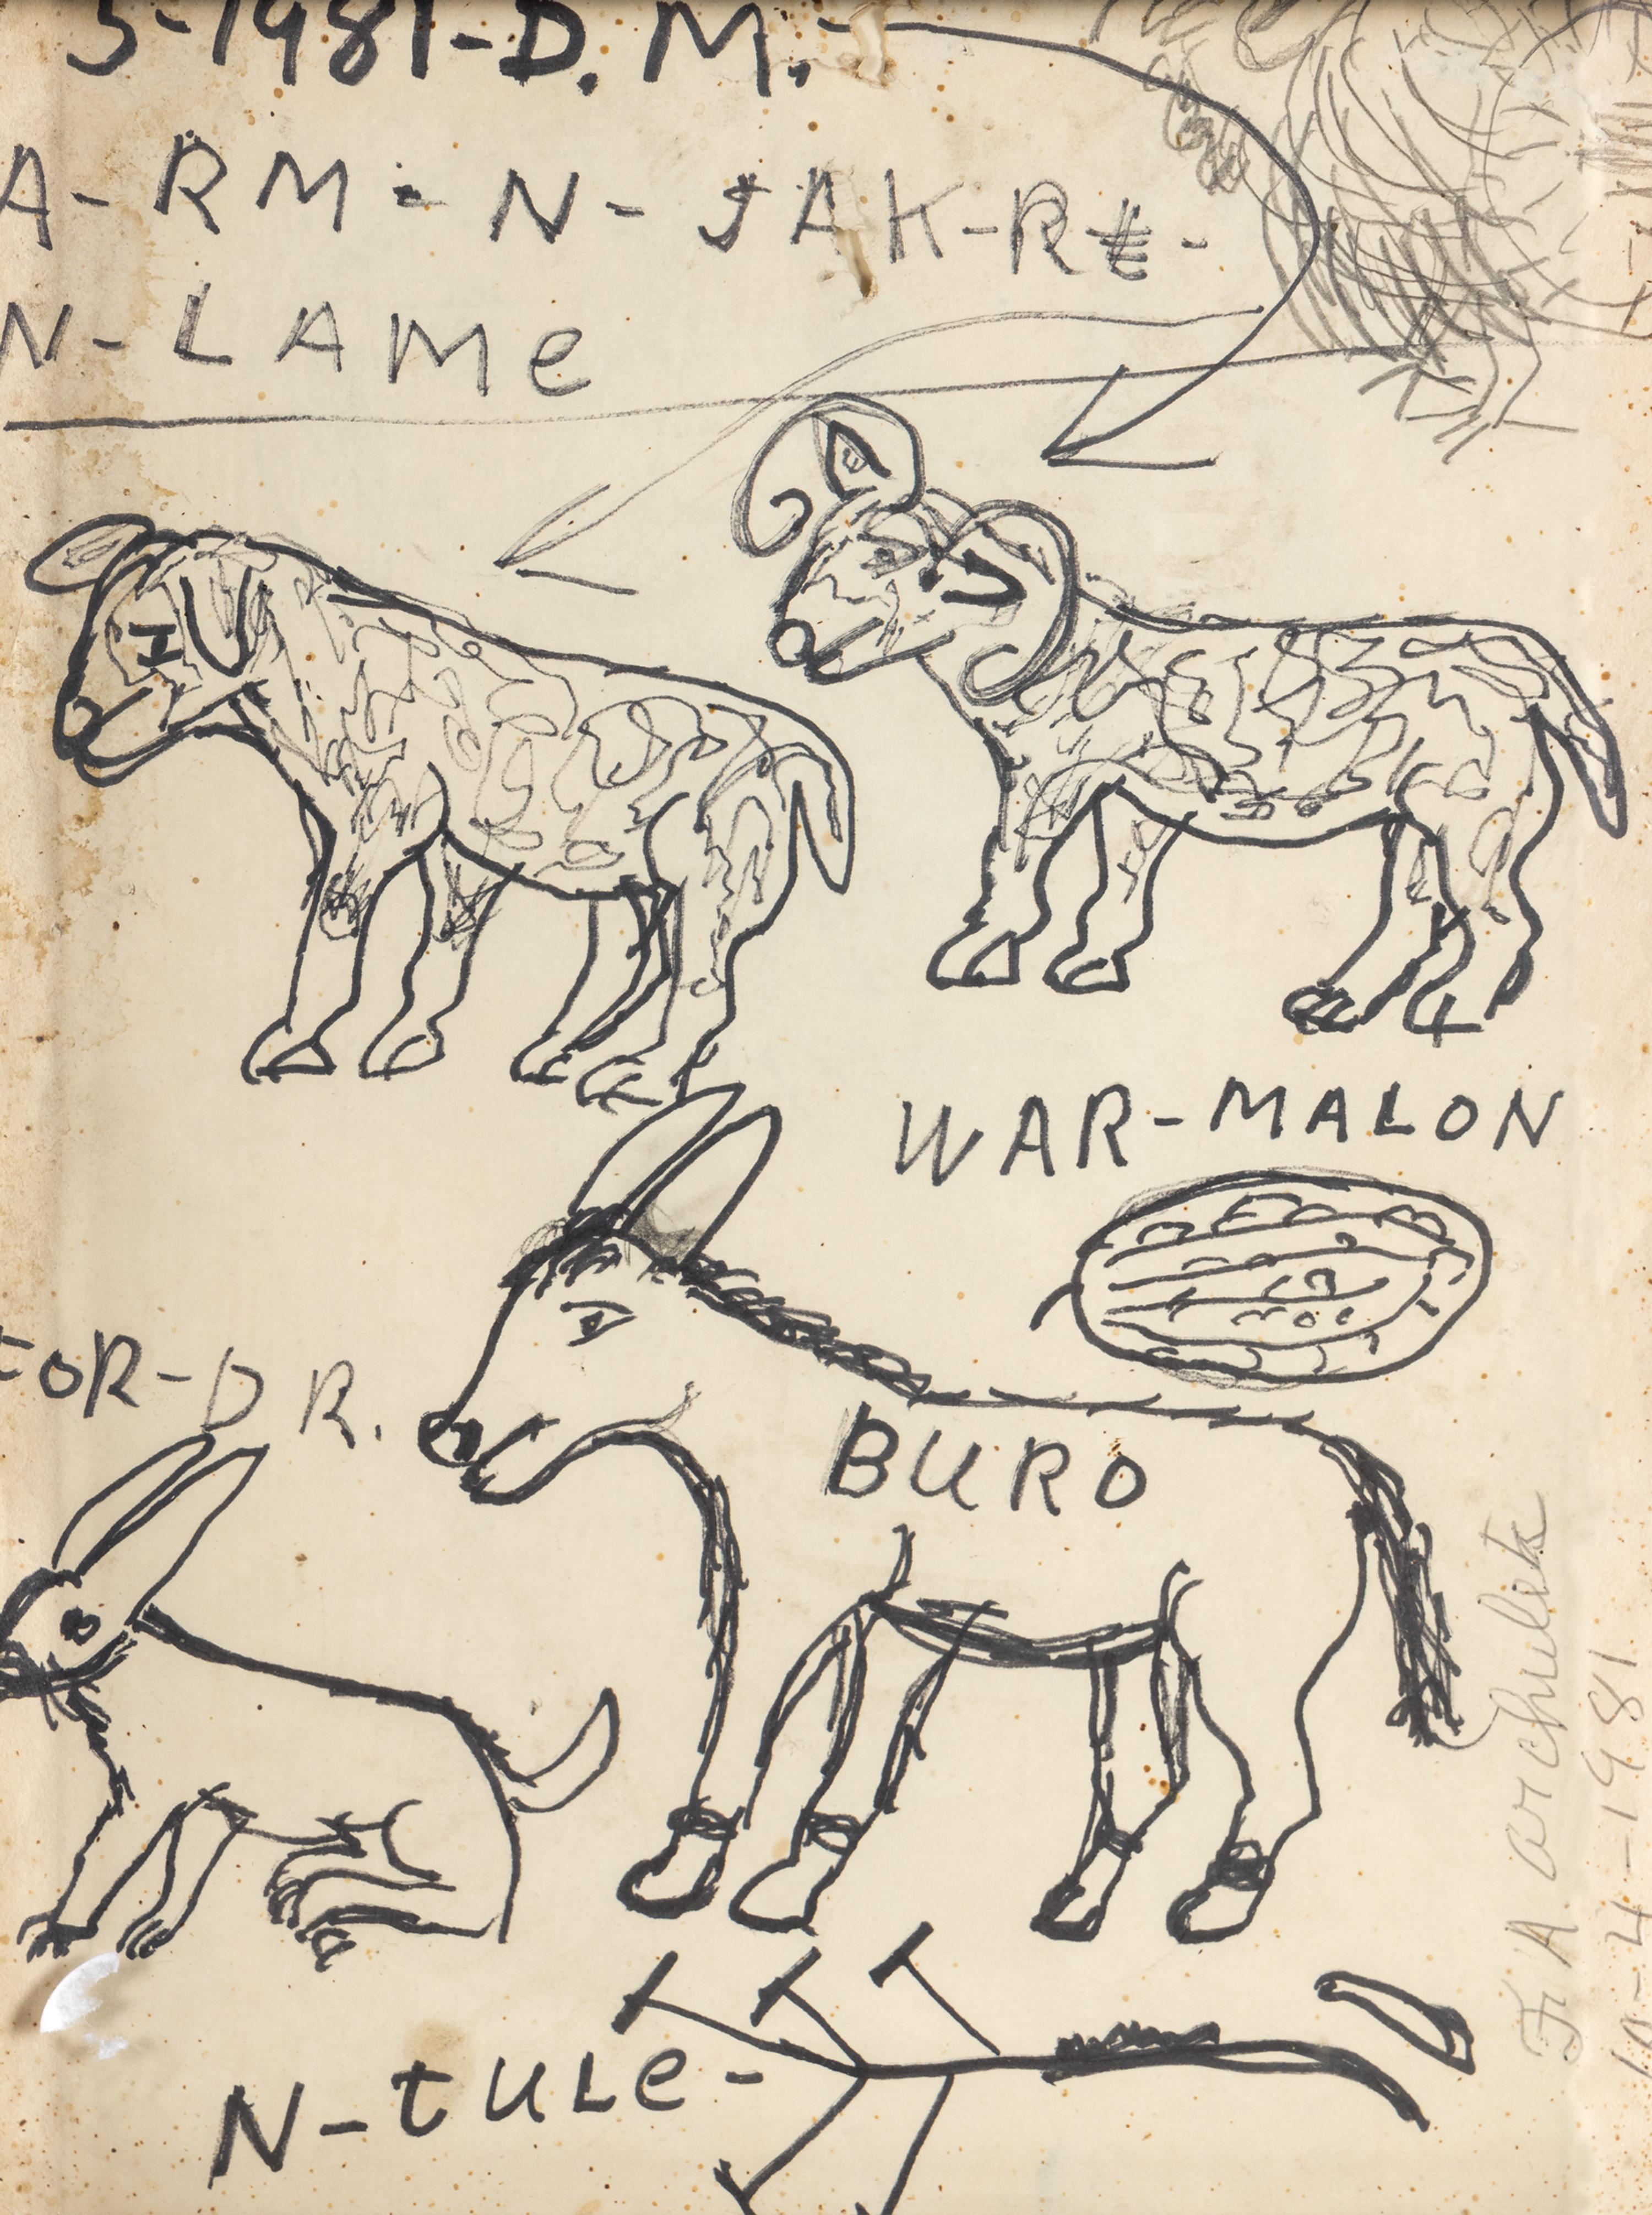 5-1981-D.M.-
A-RM-N-JAK-RE-
N-LAMe
WAR-MALON
FOR-DR.
BURO
N-tuLe-
F. A archuleta
10-4-1981